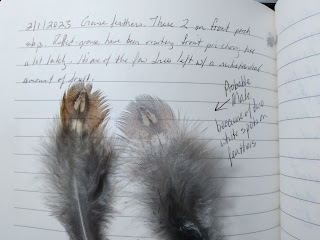 2/1/2023 Grouse feathers. These 2 on front porch
step. Ruffed grouse have been visiting front pin cherry tree
a lot lately. It's one of the few trees left w/ a substantial
amount of fruit.
Probable
Male
because of two
white spots on
feathers